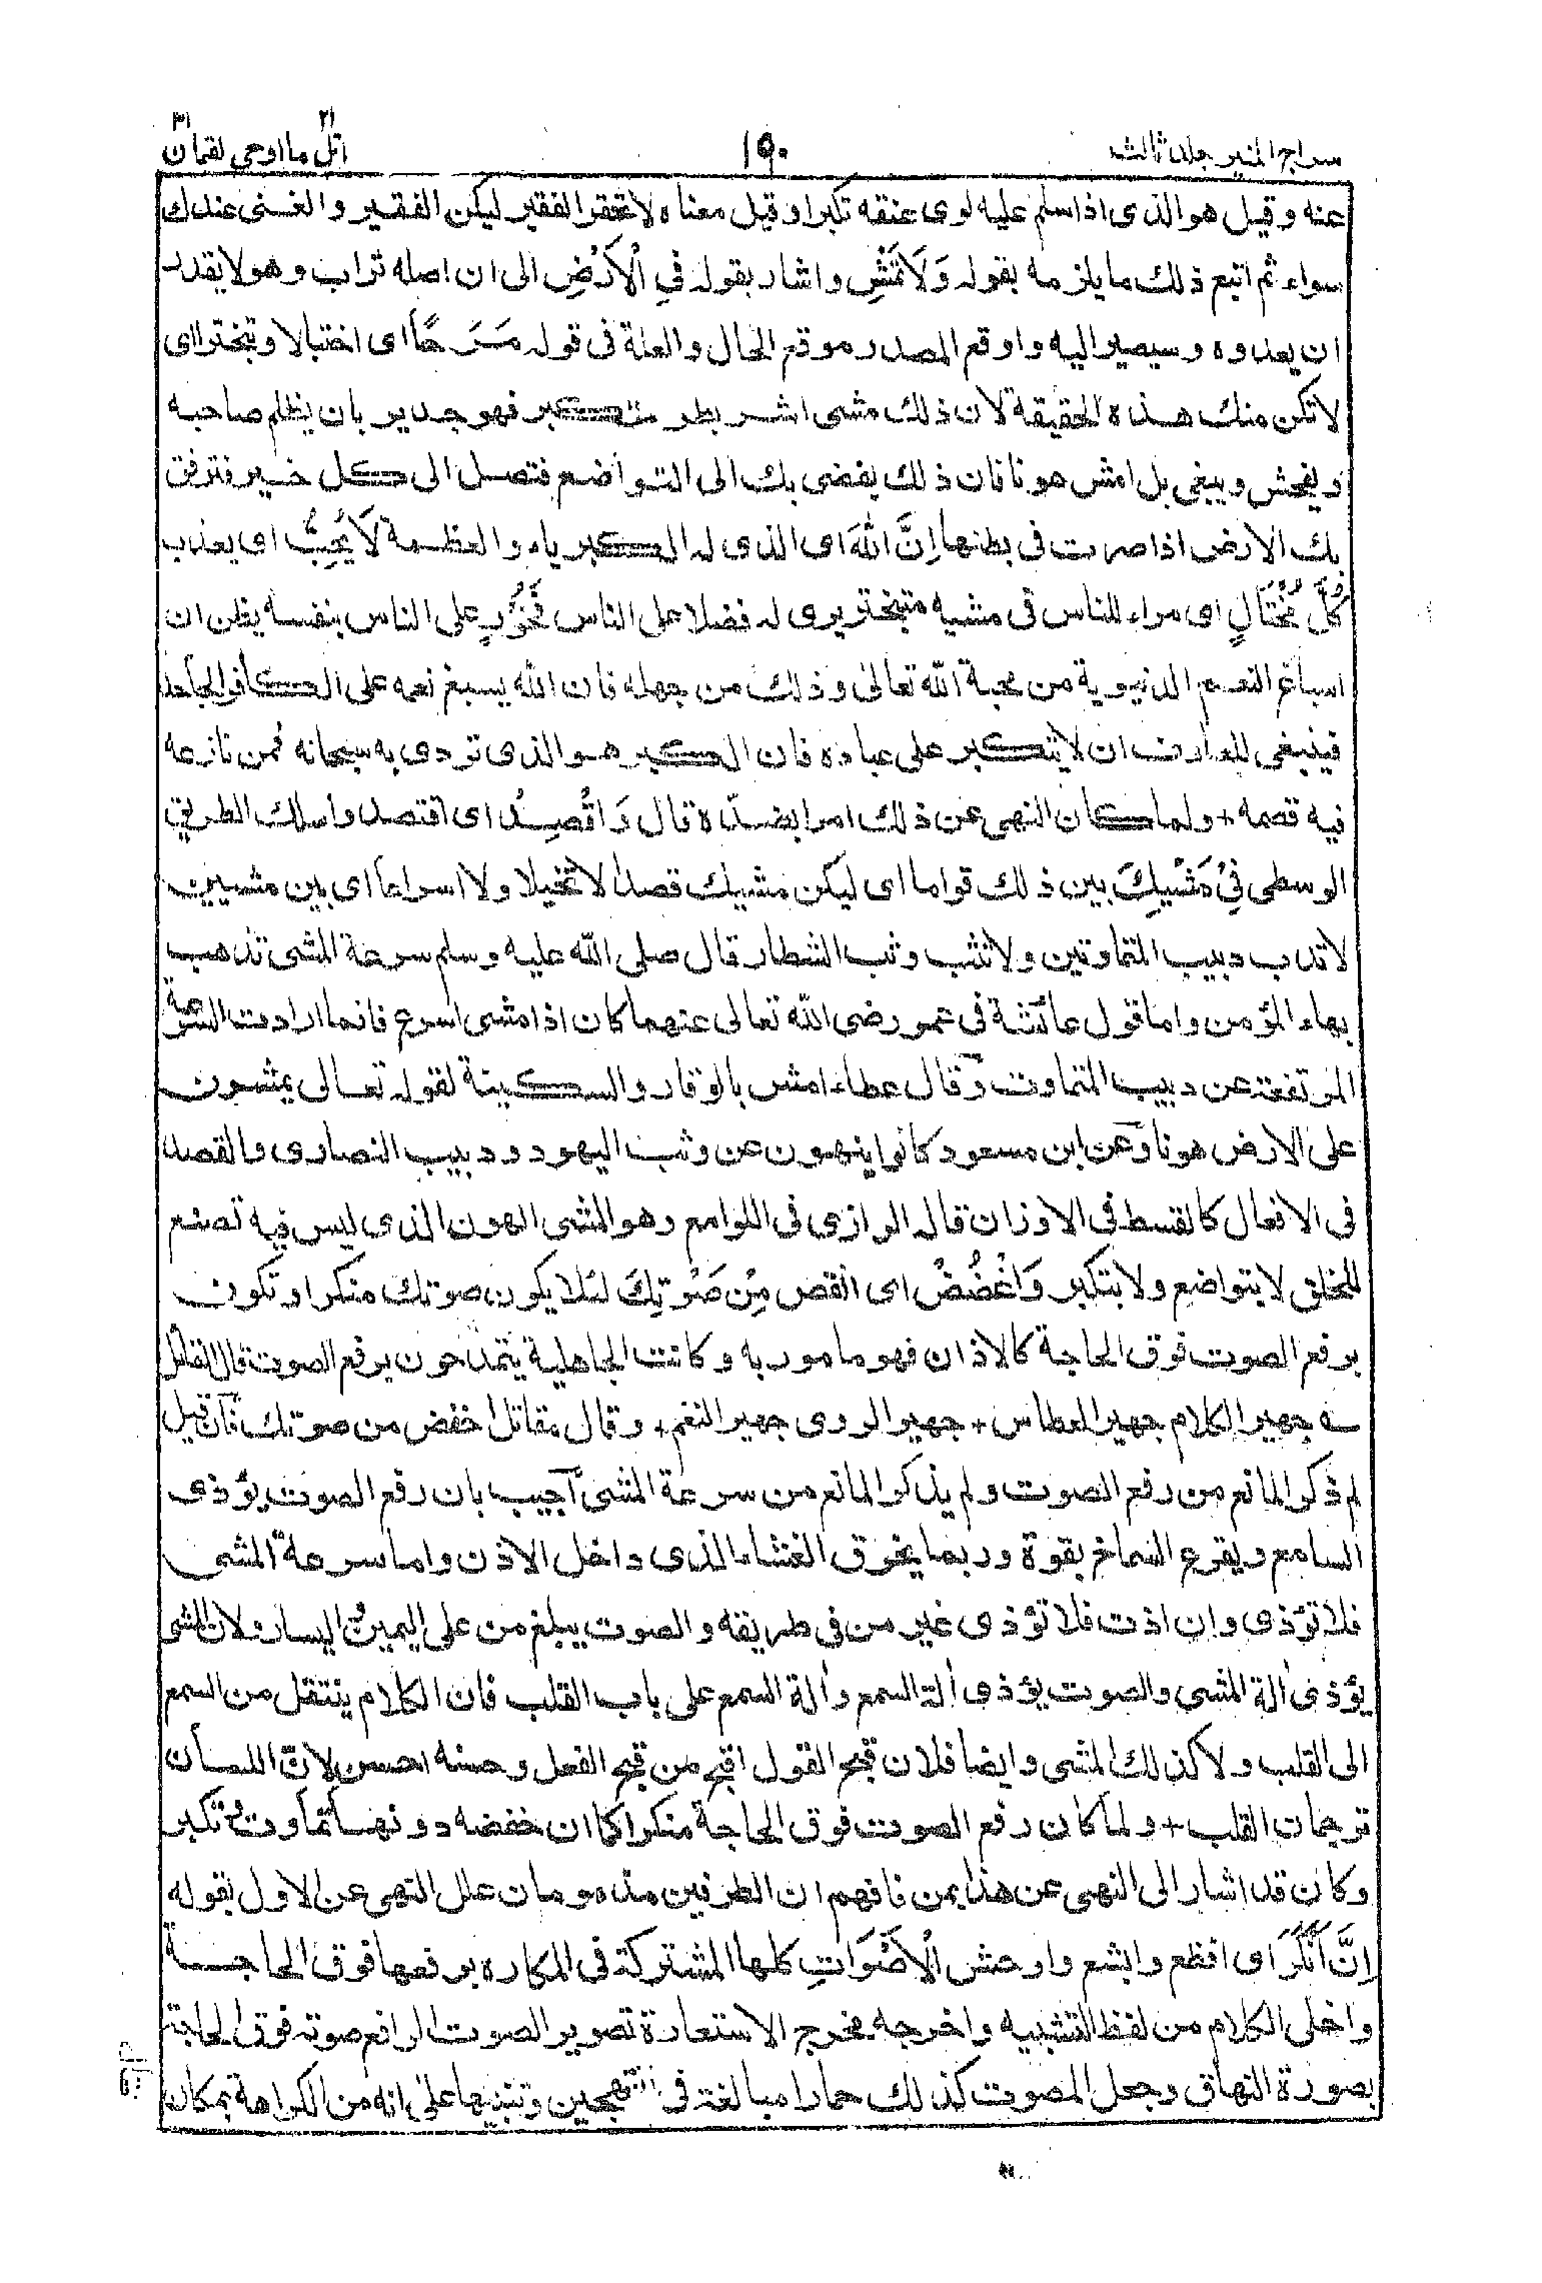 سراج المنير جلد ثالث
١٩٠
اتل ما اوحى ٢١ لقمان ٣١
عنه وقيل هو الذى اذا سلم عليه لوى عنقه تكبرا وقيل معناه لا تحقر الفقير ليكن الفقير والغنى عندك
سواء ثم اتبع ذلك ما يلزمه بقوله وَلَا تَمْشِ واشار بقوله فِي الْأَرْضِ الى ان اصله تراب وهو لا يقدر
ان يعدوه وسيصير اليه واوقع المصدر موقع الحال والعلة فى قوله مَرَحًا اى اختيالا وتبخترا اى
لا تكن منك هذه الحقيقة لان ذلك مشى اشر بطر متكبر فهو جدير بان يظلم صاحبه
ويفحش ويبغى بل امش هونا فان ذلك يفضى بك الى التواضع فتصل الى كل خير فترفق
بك الارض اذا صرت فى بطنها إِنَّ اللّٰهَ اى الذى له الكبرياء والعظمة لَا يُحِبُّ اى يعذب
كُلَّ مُخْتَالٍ اى مراء للناس فى مشيه متبختر يرى له فضلا على الناس فَخُورٍ على الناس بنفسه يظن ان
اسباغ النعم الدنيوية من محبة الله تعالىٰ وذلك من جهله فان الله يسبغ نعمه على الكافر الجاحد
فينبغى للعارف ان لا يتكبر على عباده فان الكبر هو الذى تردى به سبحانه فمن نازعه
فيه قصمه + ولما كان النهى عن ذلك امرا بضدّه قال وَاقْصِدْ اى اقتصد واسلك الطريق
الوسطى فِيْ مَشْيِكَ بين ذلك قواما اى ليكن مشيك قصدا لا تخيلا ولا اسراعا اى بين مشيين
لا تدب دبيب المتماوتين ولا تثب وثب الشطار قال صلى الله عليه وسلم سرعة المشى تذهب
بهاء المؤمن واما قول عائشة فى عمر رضى الله تعالى عنهما كان اذا مشى اسرع فانما ارادت السرعة
المرتفعة عن دبيب المتماوت وقال عطاء امش بالوقار والسكينة لقوله تعالى يمشون
على الارض هونا وعن ابن مسعود كانوا ينهون عن وثب اليهود ودبيب النصارى والقصد
فى الافعال كالقسط فى الاوزان قاله الرازى فى اللوامع وهو المشى الهون الذى ليس فيه تصنع
للخلق لا بتواضع ولا بتكبر وَاغْضُضْ اى انقص مِنْ صَوْتِكَ لئلا يكون صوتك منكرا وتكون
برفع الصوت فوق الحاجة كالاذان فهو مامور به وكانت الجاهلية يتمدحون برفع الصوت قال القائل
ـه جهير الكلام جهير العطاس + جهير الروى جهير النغم + وقال مقاتل اخفض من صوتك فان قيل
لم ذكر المانع من رفع الصوت ولم يذكر المانع من سرعة المشى اجيب بان رفع الصوت يؤذى
السامع ويقرع الصماخ بقوة وربما يخرق الغشاء الذى داخل الاذن واما سرعة المشى
فلا تؤذى وان اذت فلا تؤذى غير من فى طريقه والصوت يبلغ من على اليمين واليسار ولان المشى
يؤذى اٰلة المشى والصوت يؤذى اٰلة السمع واٰلة السمع على باب القلب فان الكلام ينتقل من السمع
الى القلب ولا كذلك المشى وايضا فلان قبيح القول اقبح من قبيح الفعل وحسنه احسن لان اللسان
ترجمان القلب + ولما كان رفع الصوت فوق الحاجة منكرا كما ان خفضه دونها تماوت وتكبر
وكان قد اشار الى النهى عن هذا بمن فافهم ان الطرفين مذمومان علل النهى عن الاول بقوله
إِنَّ أَنْكَرَ اى افظع وابشع واوحش الْأَصْوَاتِ كلها المشتركة فى المكاره برفعها فوق الحاجة
واخلى الكلام من لفظ التشبيه واخرجه مخرج الاستعارة تصوير الصوت الرافع صوته فوق الحاجة
بصورة النهاق وجعل المصوت كذلك حمارا مبالغة فى التهجين وتنبيها على انه من الكراهة بمكان